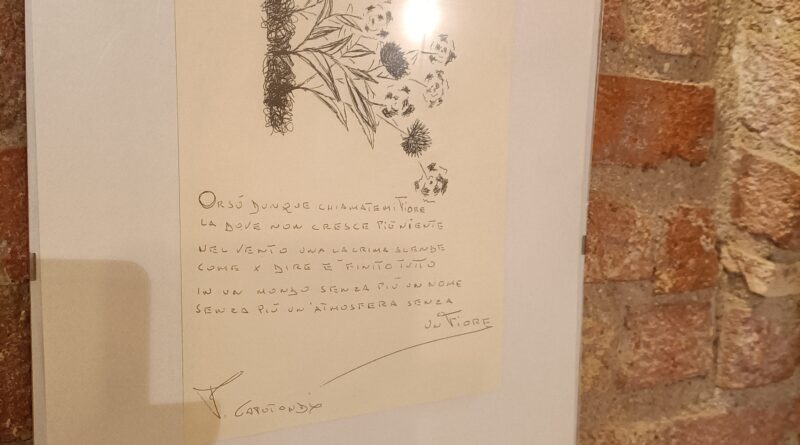 Orsú dunque chiamatemi Fiore
la dove non cresce più niente
nel vento una lacrima scende
come x dire è finito tutto
in un mondo senza più un nome
senza più un'atmosfera senza
un Fiore